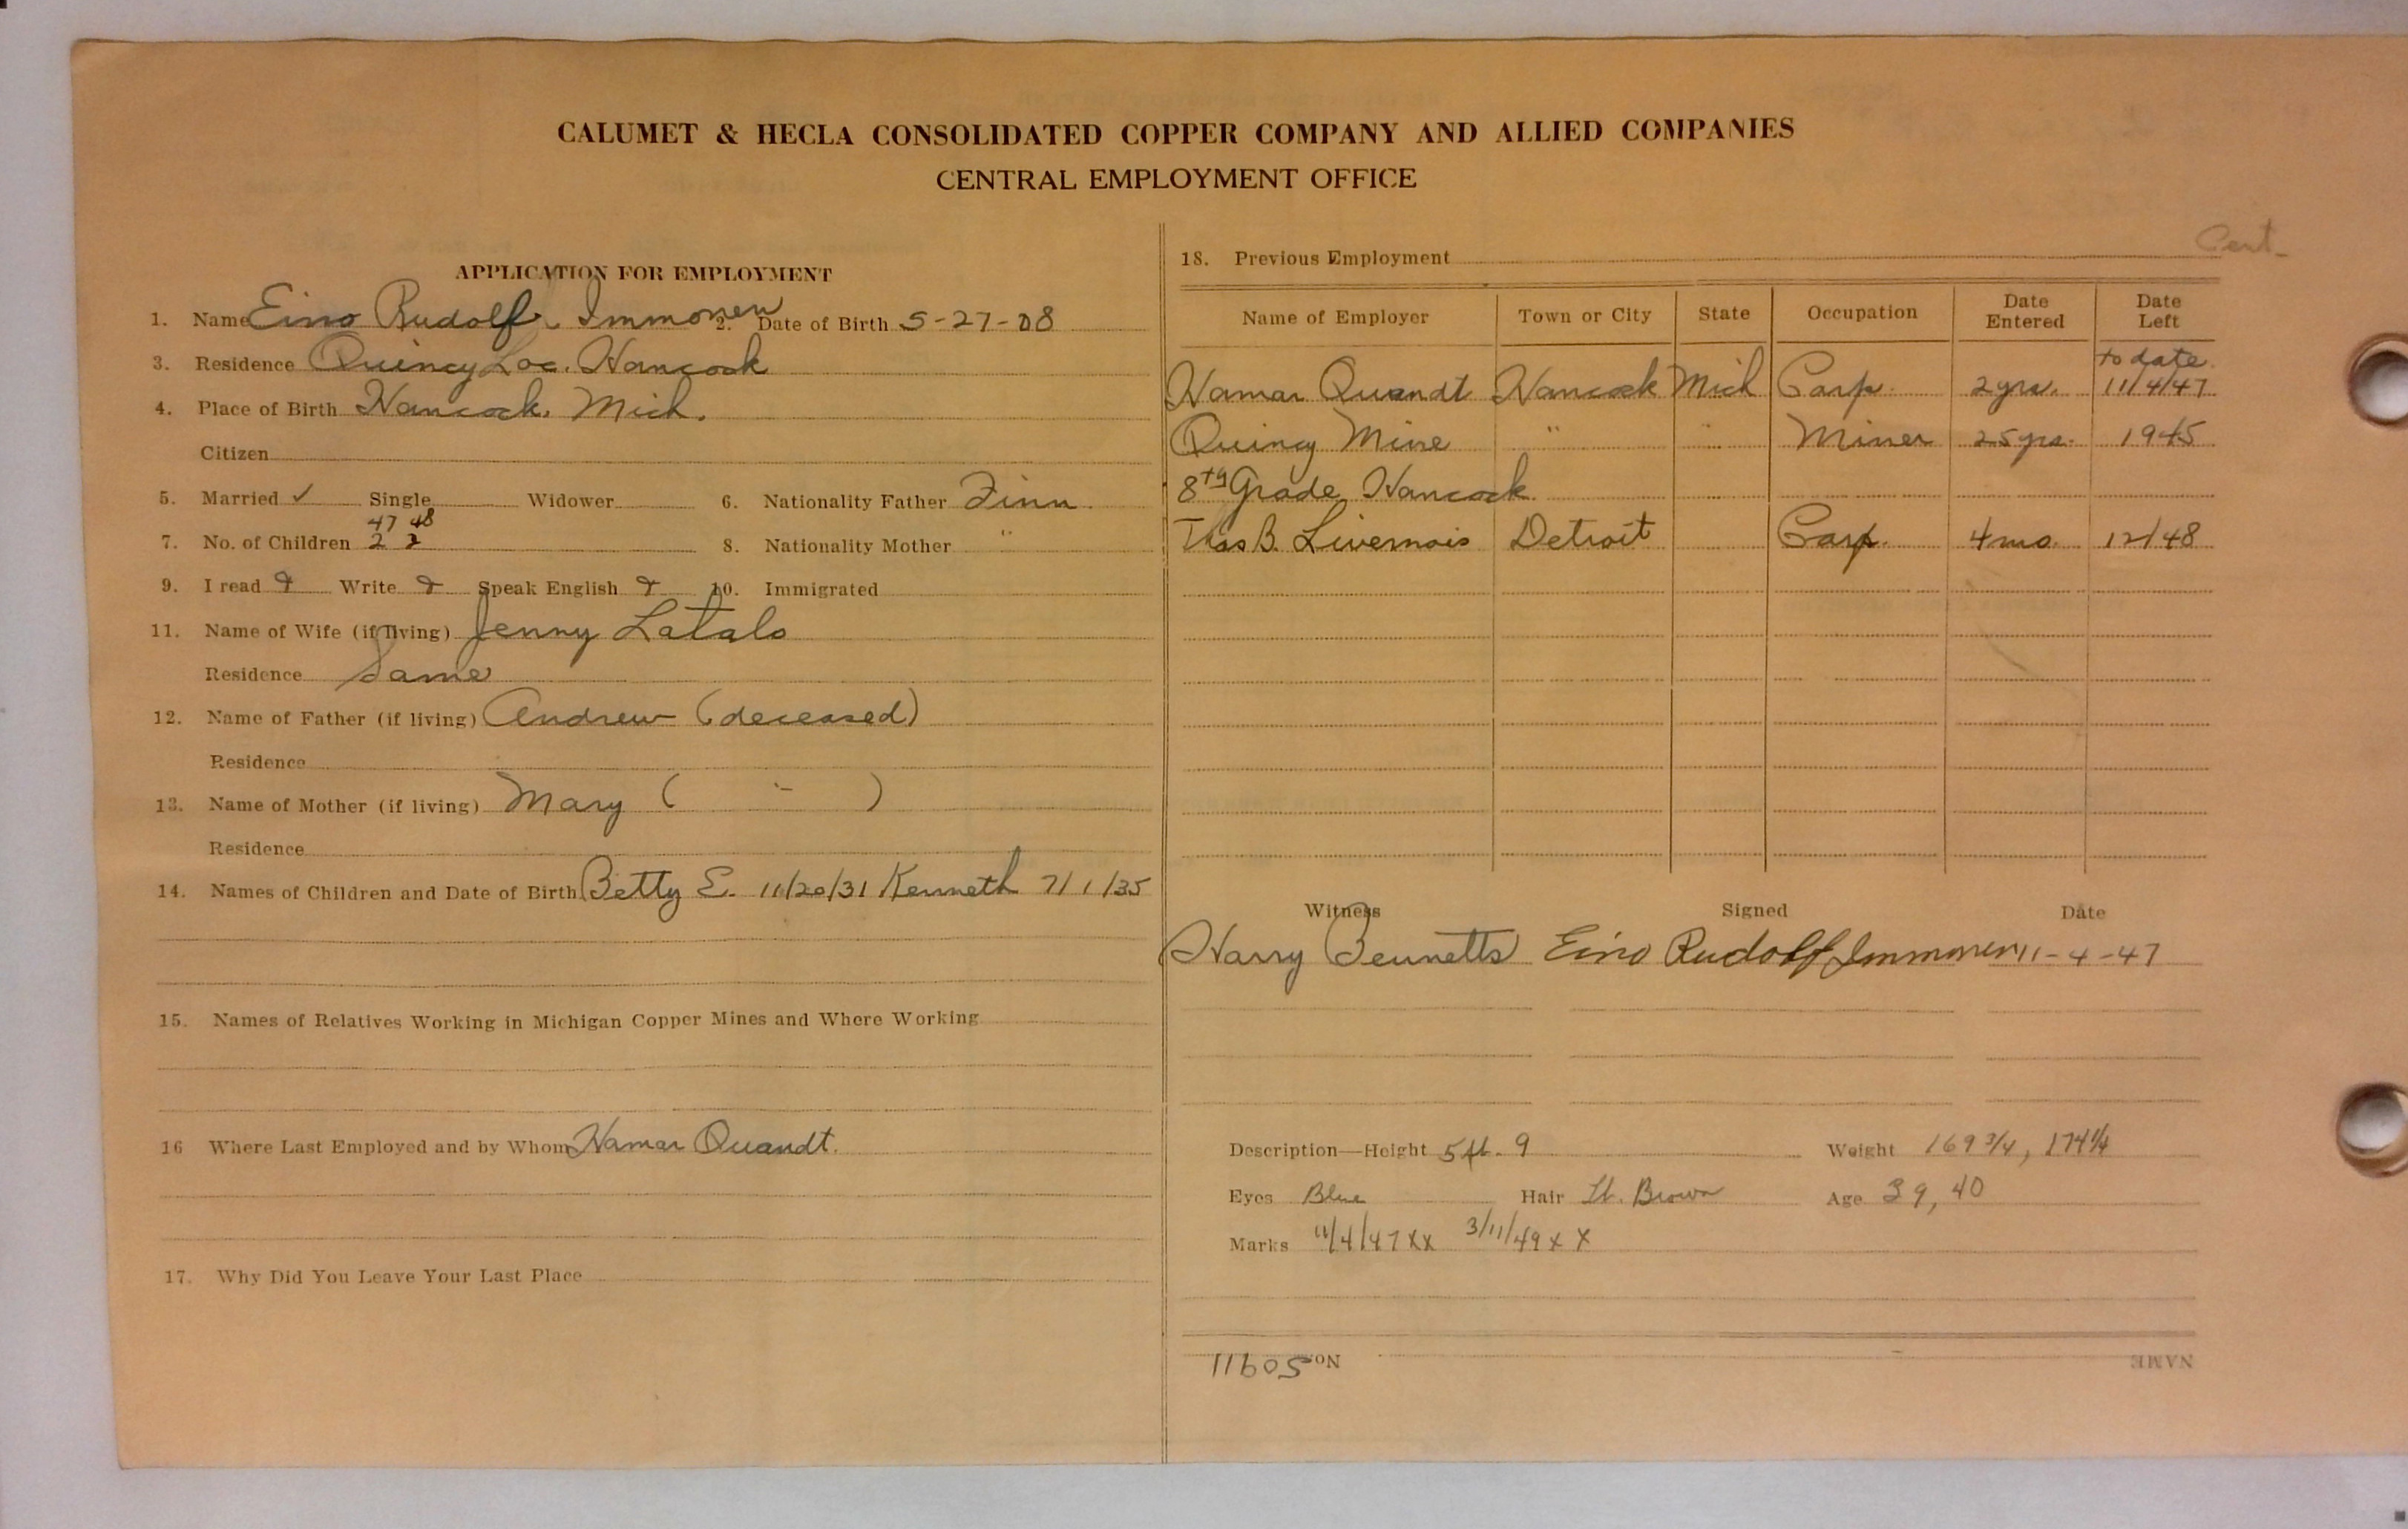 CALUMET & HECLA CONSOLIDATED COPPER COMPANY AND ALLIED COMPANIES
CENTRAL EMPLOYMENT OFFICE
APPLICATION FOR EMPLOYMENT
1. Name Eino Rudolf Immonen 2. Date of Birth 5-27-08
3. Residence Quincy Loc. Hancock
4. Place of Birth Hancock, Mich.
Citizen
5. Married ✓ Single Widower 6. Nationality Father Finn
47 48
7. No. of Children 2 2 8. Nationality Mother "
9. I read Write Speak English 10. Immigrated
11. Name of Wife (if living) Jenny Latalo
Residence Same
12. Name of Father (if living) Andrew (deceased)
Residence
13. Name of Mother (if living) Mary ( " )
Residence
14. Names of Children and Date of Birth Betty E. 11/20/31 Kenneth 7/1/35
15. Names of Relatives Working in Michigan Copper Mines and Where Working
16 Where Last Employed and by Whom Hamar Quandt.
17. Why Did You Leave Your Last Place
Cent.
18. Previous Employment
Name of Employer Town or City State Occupation Date Entered Date Left
to date
Hamar Quandt Hancock Mich Carp. 2 yrs. 11/4/47
Quincy Mine " " Miner 25 yrs. 1945
8th Grade Hancock
Thos B. Livernois Detroit Carp. 4 mo. 12/48
Witness Signed Date
Harry Bennetts Eino Rudolf Immonen 11-4-47
Description—Height 5 ft. 9 Weight 169 3/4, 174 1/4
Eyes Blue Hair Lt. Brown Age 39, 40
Marks 11/4/47 XX 3/11/49 X X
11605 No.
NAME